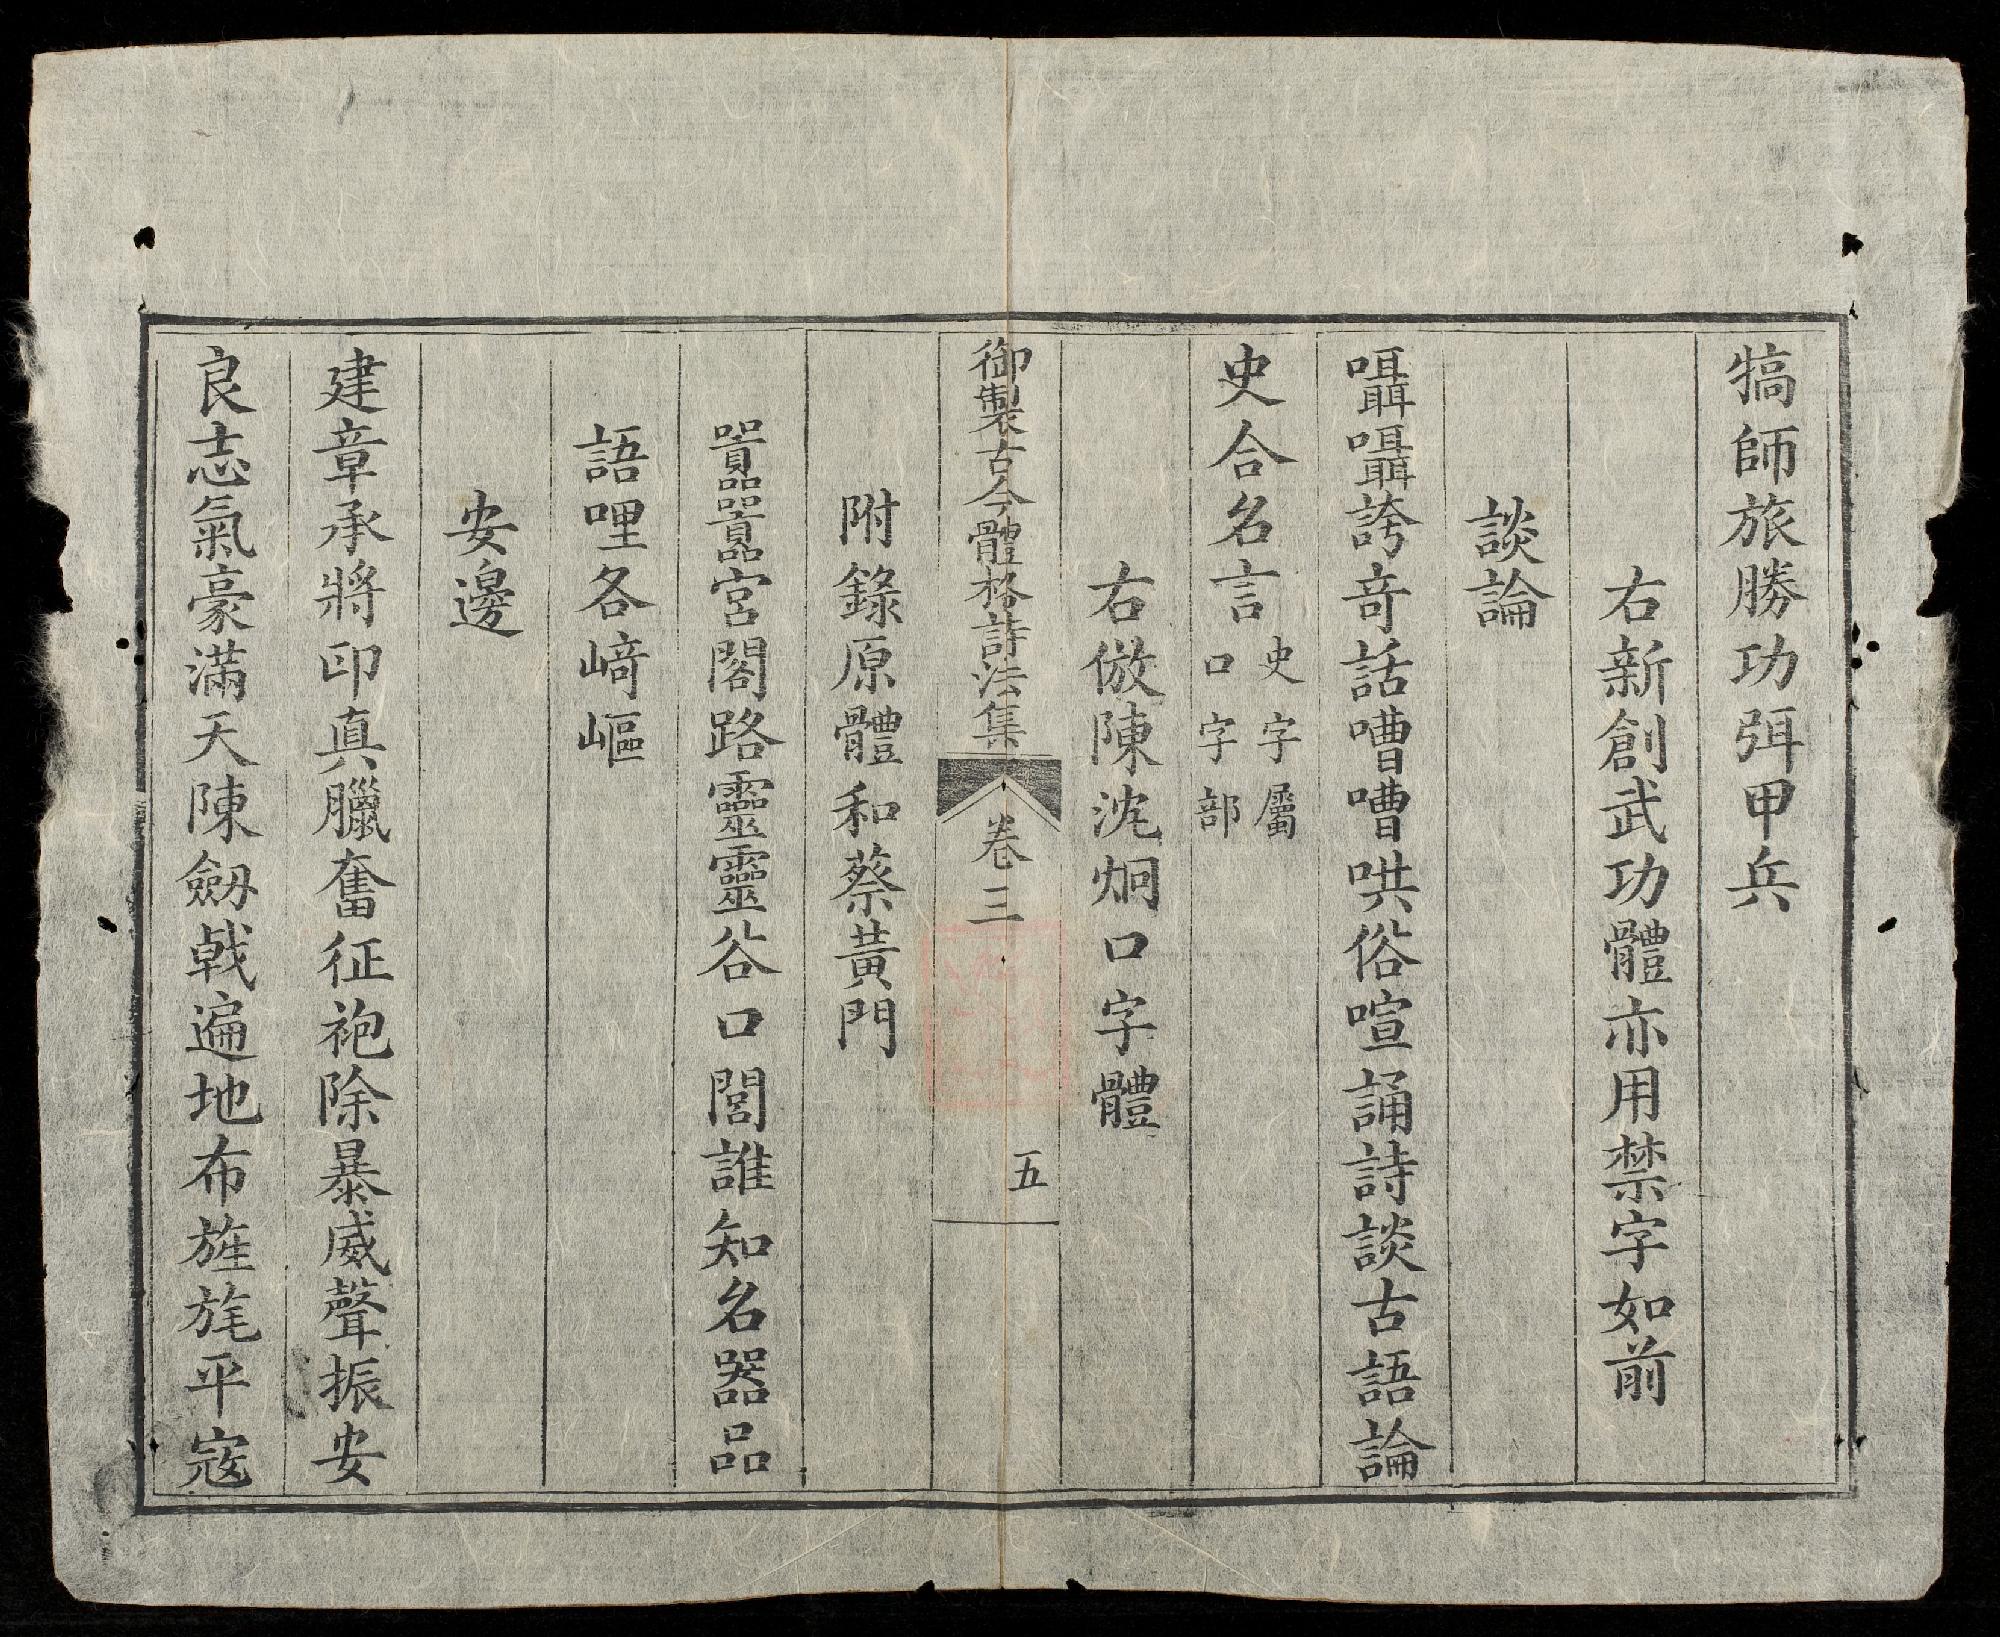 犒師旅勝功弭甲兵
右新創武功體亦用禁字如前
談論
囁囁誇奇話嘈嘈哄俗喧誦詩談古語論
史合名言史字屬口字部
右倣陳沈炯口字體
御製古今體格詩法集 卷三 五
附錄原體和蔡黃門
嚚嚚宮閣路靈靈谷口閭誰知名器品
語哩各崎嶇
安邊
建章承將印真臘奮征袍除暴威聲振安
良志氣豪滿天陳劔戟遍地布旌旄平寇